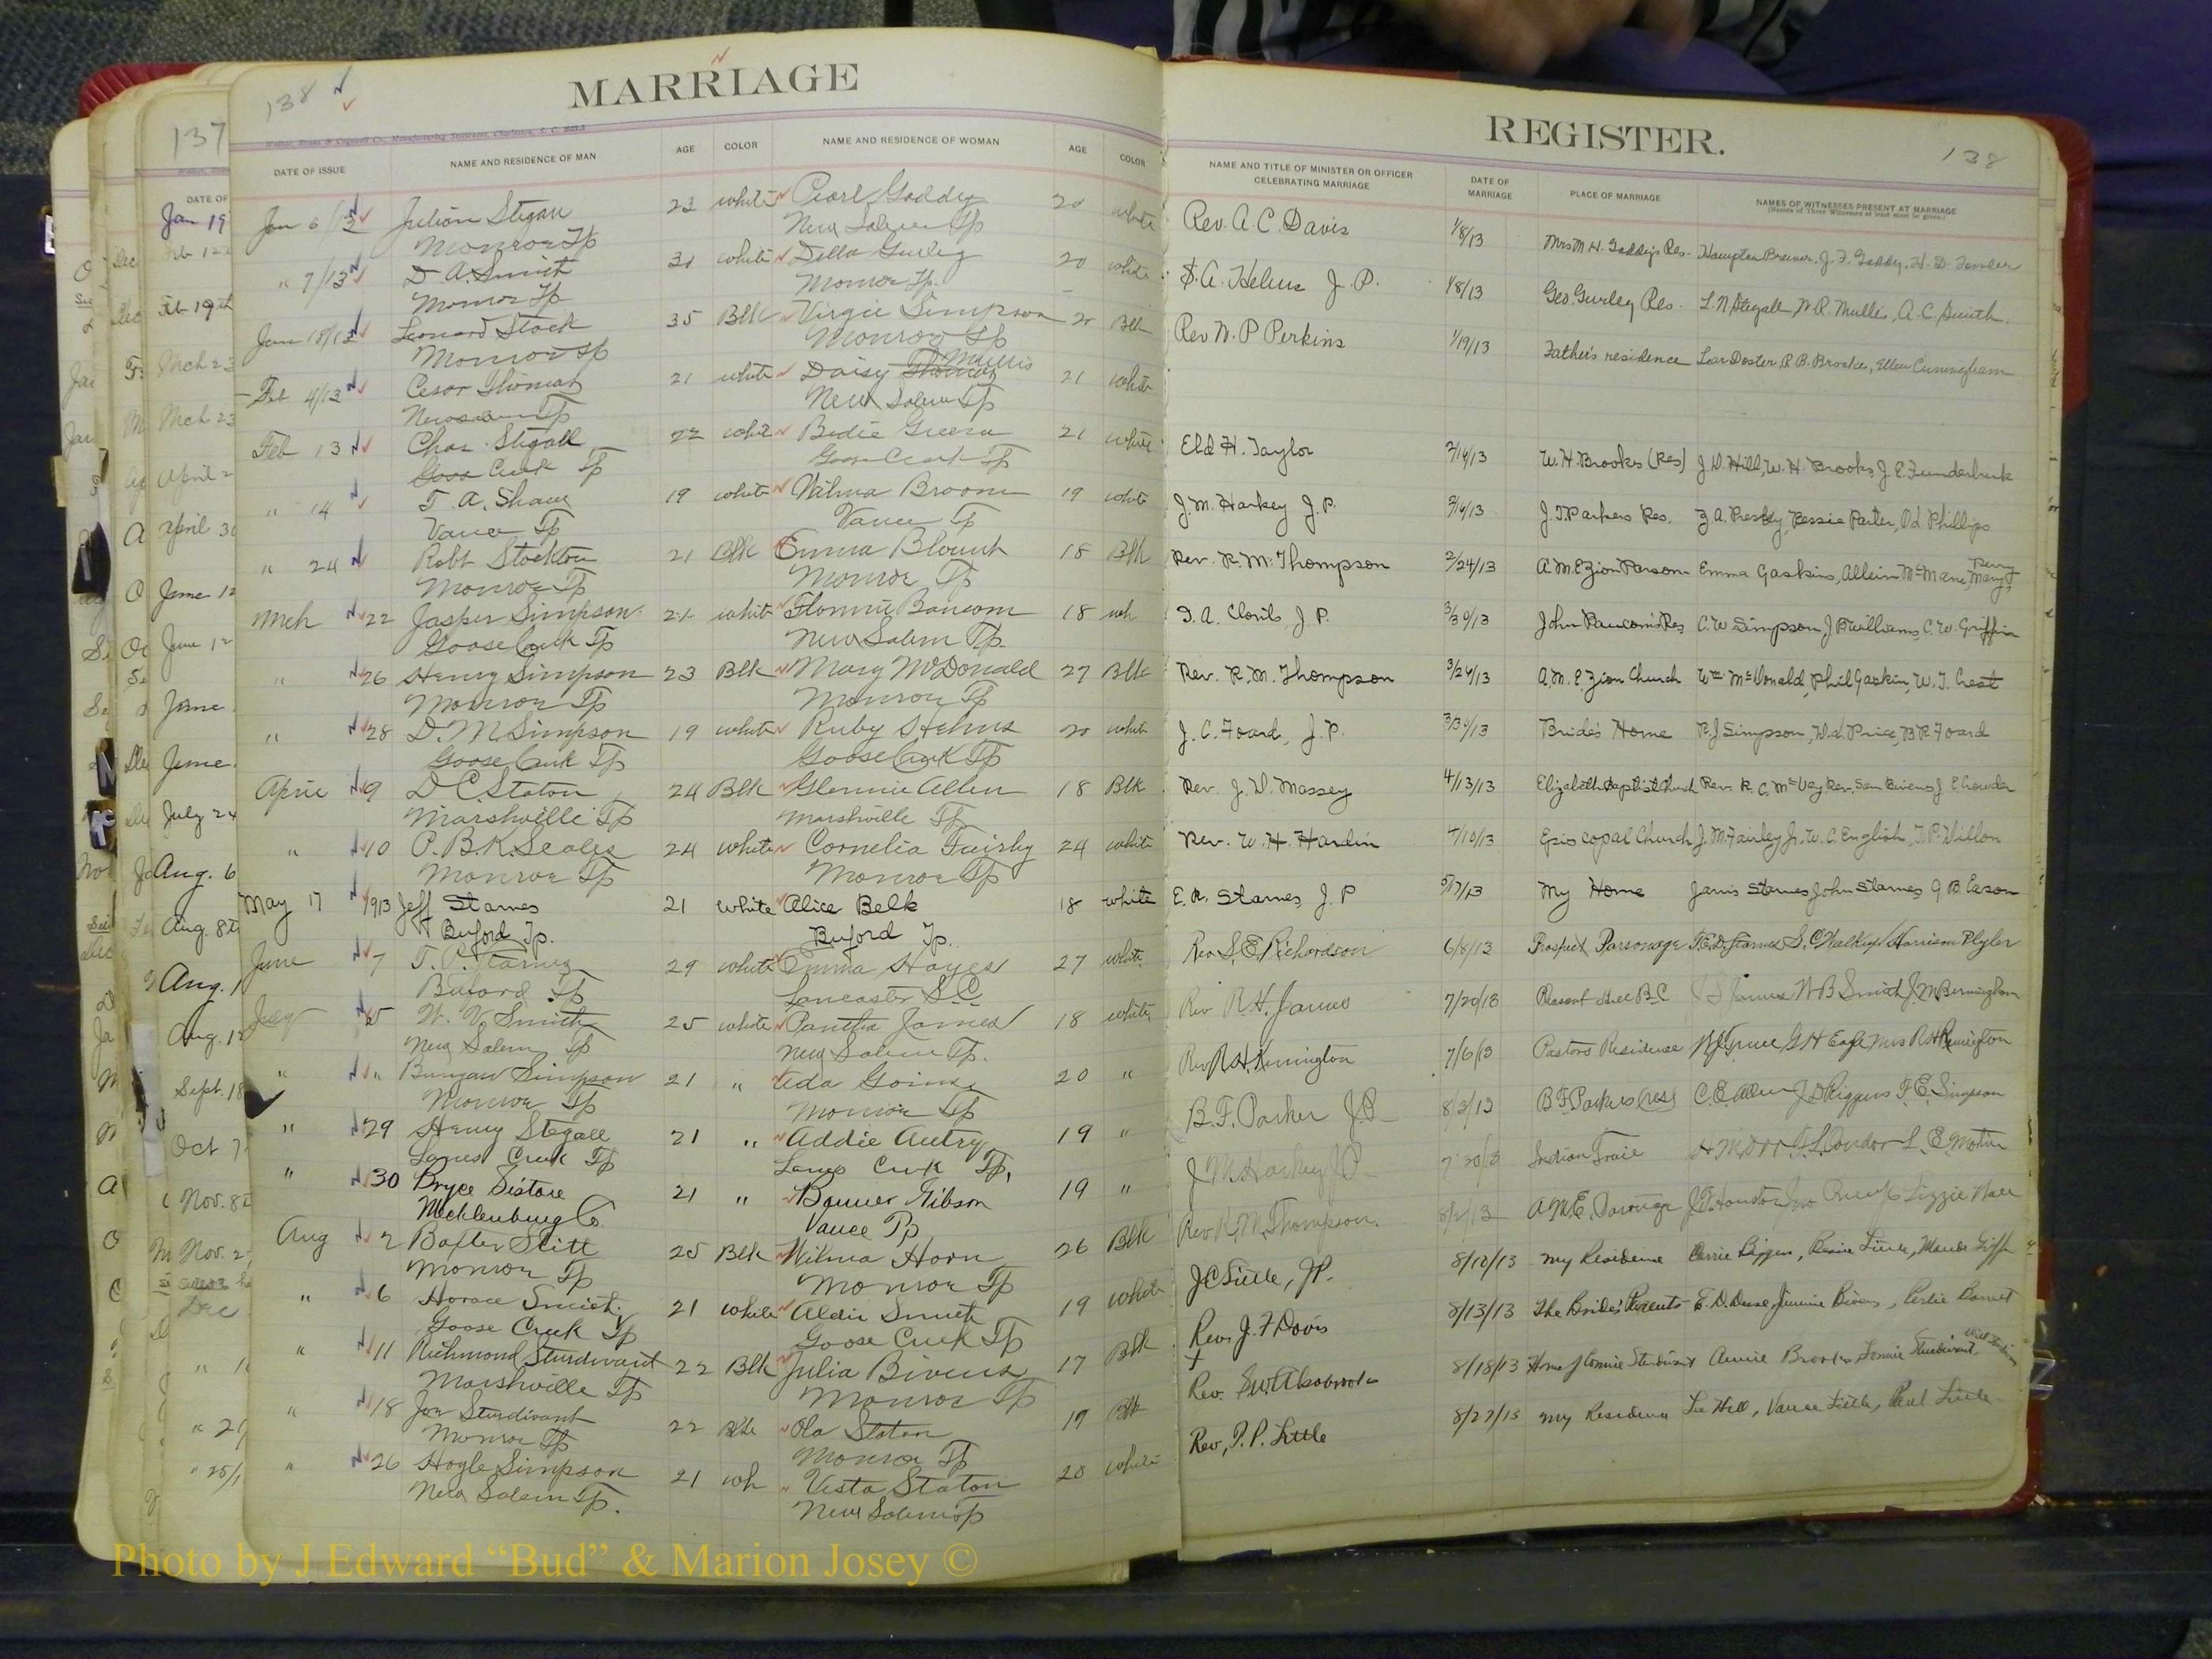 138
MARRIAGE
Walker, Evans & Cogswell Co., Manufacturing Stationers, Charleston, S. C.
DATE OF ISSUE NAME AND RESIDENCE OF MAN AGE COLOR NAME AND RESIDENCE OF WOMAN AGE COLOR
Jan 6/13 Julian Stegall 23 white Pearl Gaddy 20 white
Monroe Tp New Salem Tp
" 7/13 D A. Smith 31 white Della Gurley 20 white
Monroe Tp Monroe Tp.
Jan 18/13 Leonard Stock 35 Blk Virgie Simpson 21 Blk
Monroe Tp Monroe Tp
Feb 4/13 Cesor Thomas 21 white Daisy Thomas Mullis 21 white
New Salem Tp New Salem Tp
Feb 13 Chas. Stegall 22 white Bedie Greene 21 white
Goose Creek Tp Goose Creek Tp
" 14 T. A. Shaw 19 white Wilma Broom 19 white
Vance Tp Vance Tp
" 24 Robt Stockton 21 Blk Emma Blount 18 Blk
Monroe Tp Monroe Tp
Mch 22 Jasper Simpson 21 white Flonnie Baucom 18 wh
Goose Creek Tp New Salem Tp.
" 26 Henry Simpson 23 Blk Mary McDonald 27 Blk
Monroe Tp Monroe Tp
" 28 D. M Simpson 19 white Ruby Helms 20 white
Goose Creek Tp Goose Creek Tp
April 9 D C. Staton 24 Blk Glennie Allen 18 Blk
Marshville Tp Marshville Tp
" 10 P. B. K. Scales 24 white Cornelia Fairley 24 white
Monroe Tp Monroe Tp
May 17 1913 Jeff Starnes 21 white Alice Belk 18 white
Buford Tp. Buford Tp.
June 7 T. P. Starnes 29 white Emma Hayes 27 white
Buford Tp Lancaster S.C.
July 5 W. V. Smith 25 white Pantha James 18 white
New Salem Tp New Salem Tp.
" " Bunyan Simpson 21 " Ada Goins 20 "
Monroe Tp Monroe Tp
" 29 Henry Stegall 21 " Addie Autry 19 "
Lanes Creek Tp Lanes Creek Tp,
" 30 Bryce Sistare 21 " Banner Gibson 19 "
Mecklenburg Co. Vance Tp
Aug 2 Baxter Stitt 25 Blk Wilma Horn 26 Blk
Monroe Tp Monroe Tp
" 6 Horace Smith 21 white Aldie Smith 19 white
Goose Creek Tp Goose Creek Tp
" 11 Richmond Sturdivant 22 Blk Julia Bivens 17 Blk
Marshville Tp Monroe Tp
" 18 Joe Sturdivant 22 Blk Ola Staton 19 Blk
Monroe Tp Monroe Tp
" 26 Hoyle Simpson 21 wh Vista Staton 20 white
New Salem Tp. New Salem Tp
REGISTER.
138
NAME AND TITLE OF MINISTER OR OFFICER CELEBRATING MARRIAGE DATE OF MARRIAGE PLACE OF MARRIAGE NAMES OF WITNESSES PRESENT AT MARRIAGE
(Names of Three Witnesses at least must be given.)
Rev. A. C. Davis 1/8/13 Mrs M. H. Gaddy's Res. Hampton Brewer, J. F. Gaddy, H. D. Fowler
S. A. Helms J. P. 1/8/13 Geo. Gurley Res. L. N. Stegall, W. R. Mullis, A. C. Smith.
Rev W. P Perkins 1/19/13 Father's residence Lear Doster, R. B. Brookes, Ellen Cunningham
Eld H. Taylor 2/14/13 W. H. Brooks (Res) J. D. Hill, W. H. Brooks, J. E. Funderburk
J. M. Harkey J. P. J. T. Parkers Res. Z. A. Presley, Bessie Parter, Phillips
Rev. R. M. Thompson 2/24/13 A M. E Zion Parson Emma Gaskins, McMane, Mary J. Perry
T. A. Clonts J. P. 3/30/13 John Baucom's Res. C. W Simpson, J Williams, C. W. Griffin
Rev. R. M. Thompson 3/24/13 A. M. E. Zion Church Wm McDonald, Phil Gaskin, W. T. Crest
J. C. Foard, J. P. 3/30/13 Bride's Home R. J Simpson, W. L. Price, B R Foard
Rev. J. D. Massey 4/13/13 Elizabeth Baptist Church Rev. R. C. McVay, Rev. Sam Bivens, J E Crowder
Rev. W. H. Hardin 4/10/13 Episcopal Church J. M. Fairley Jr. W. C. English, T. P. Dillon
E. R. Starnes J. P 5/17/13 My Home Jarvis Starnes, John Starnes, G B. Eason
Rev S. E. Richardson 6/8/13 Prospect Parsonage T. E. D. Starnes S. C Walkup Harrison Plyler
Rev R. H. James 7/20/13 Pleasant Hill B. C W B Smith J. M Bermingham
Rev R. H. Kinnington 7/6/13 Pastors Residence G H Eagle Mrs R H Kennington
B. F. Parker J. P. 8/3/13 B F Parkers (res) C. E. Allen J D Riggins F. E. Simpson
J M. Harkey J P. 7/30/13 Indian Trail H M. Orr F. L. Condor L. E. Martin
Rev R. M. Thompson. 8/2/13 A. M. E. Parsonage J. T. Houston Lizzie Nall
J C Little, J P. 8/10/13 my Residence Carrie Biggers, Bessie Little, Maude Griffin
Rev. J. F Davis 8/13/13 The Bride's Parents E. D. Deese, Jimmie Bivens, Leslie Barrett
Rev. 8/18/13 Home of Lonnie Sturdivant Annie Brooks, Lonnie Sturdivant,
Rev, P. P. Little 8/27/13 my Residence Lee Hill, Vance Little, Paul Little
137
DATE OF
Jan 19
Feb 19th
Mch 23
Mch 23
April 2
April 30
June 12
June 12
June
June
July 24
Aug. 6
Aug. 8th
Aug. 1
Aug. 12
Sept. 18
Oct 7
Nov. 8th
Nov. 2
Dec
Photo by J Edward “Bud” & Marion Josey ©